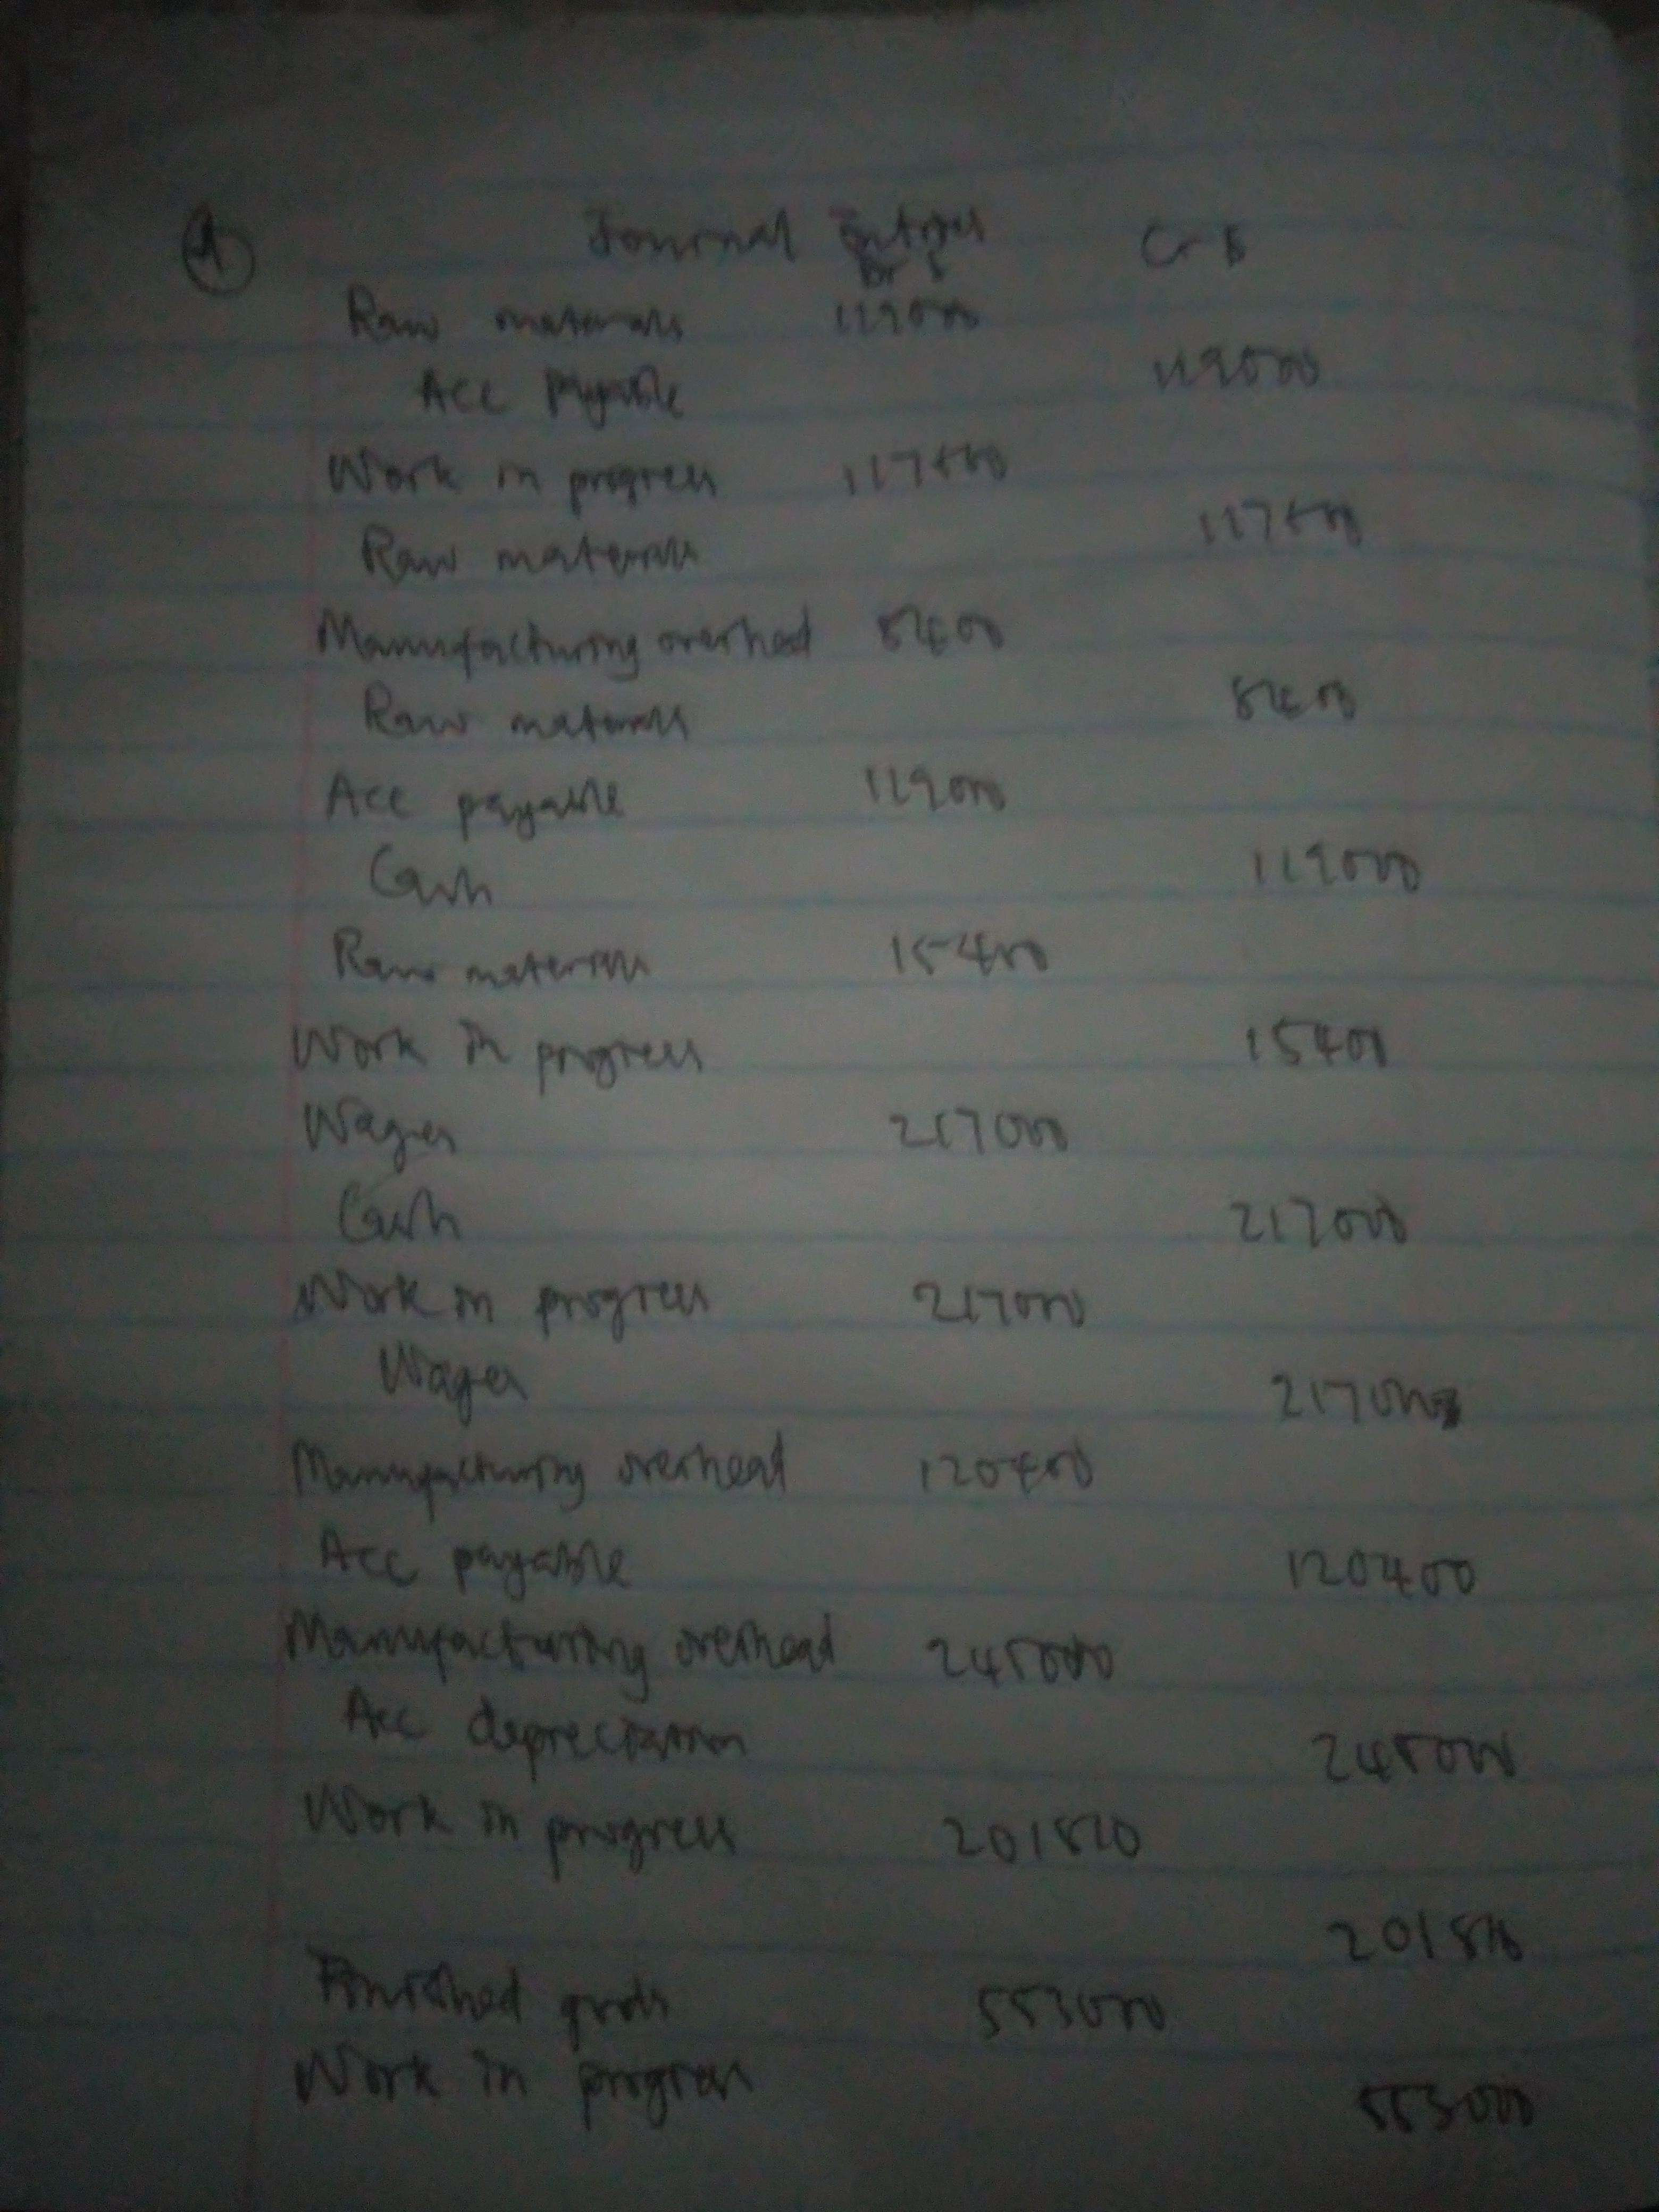 Journal Entries Cr $
Dr $
Raw materials 119000
Acc payable 119000
Work in progress
Raw materials
Manufacturing overhead 8400
Raw materials 8400
Acc payable 119000
Cash 119000
Raw materials 15400
Work in progress 15400
Wages 217000
Cash 217000
Work in progress 217000
Wages 217000
Manufacturing overhead 120400
Acc payable 120400
Manufacturing overhead 245000
Acc depreciation 245000
Work in progress
Finished goods 553000
Work in progress 553000